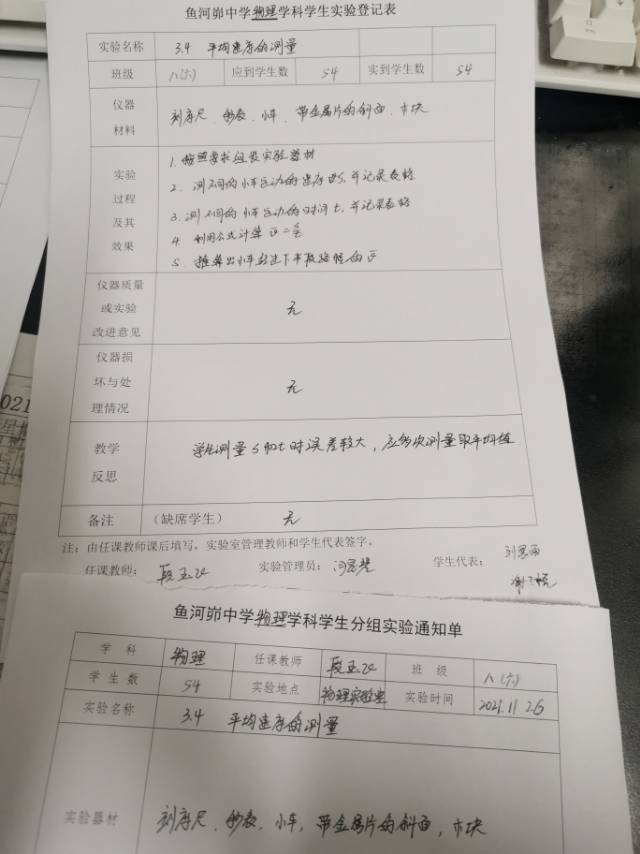 鱼河峁中学物理学科学生实验登记表
实验名称 3.4 平均速度的测量
班级 八(六) 应到学生数 54 实到学生数 54
仪器材料 刻度尺、秒表、小车、带金属片的斜面、木块
实验过程及其效果
1. 按照要求组装实验器材
2. 测不同的小车运动的速度 并记录表格
3. 测不同的小车运动的时间t, 并记录表格
4. 利用公式计算
5. 推算出小车 下半段路程的
仪器质量或实验改进意见 无
仪器损坏与处理情况 无
教学反思 学生测量s和t时误差较大,应多次测量取平均值
备注 (缺席学生) 无
注:由任课教师课后填写,实验室管理教师和学生代表签字。
任课教师: 段玉 实验管理员: 学生代表: 刘思雨
鱼河峁中学物理学科学生分组实验通知单
学科 物理 任课教师 段玉 班级 八(六)
学生数 54 实验地点 物理实验室 实验时间 2021.11 26
实验名称 3.4 平均速度的测量
实验器材 刻度尺、秒表、小车、带金属片的斜面、木块
021